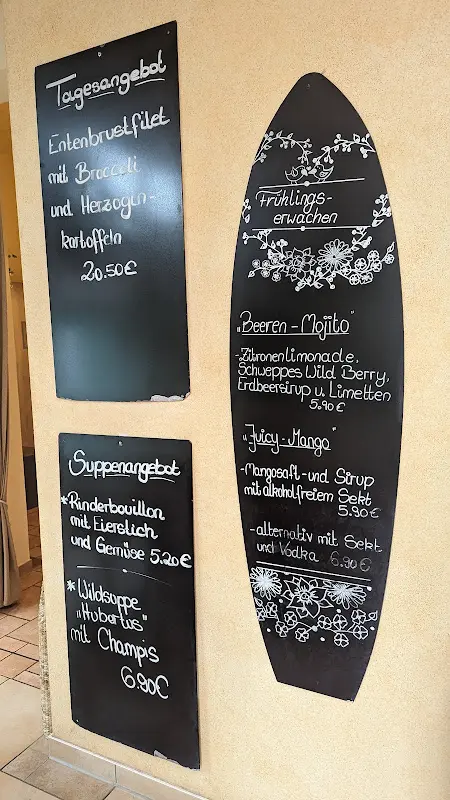 Tagesangebot
Entenbrustfilet
mit Broccoli
und Herzogin-
kartoffeln
20.50€
Suppenangebot
*Rinderbouillon
mit Eierstich
und Gemüse 5.20€
*Wildsuppe
"Hubertus"
mit Champis
6.90€
Frühlings-
erwachen
„Beeren-Mojito"
-Zitronenlimonade,
Schweppes Wild Berry,
Erdbeersirup u. Limetten
5.90€
„Juicy-Mango"
-Mangosaft-und Sirup
mit alkoholfreiem Sekt
5.90€
-alternativ mit Sekt
und Vodka 6.90€